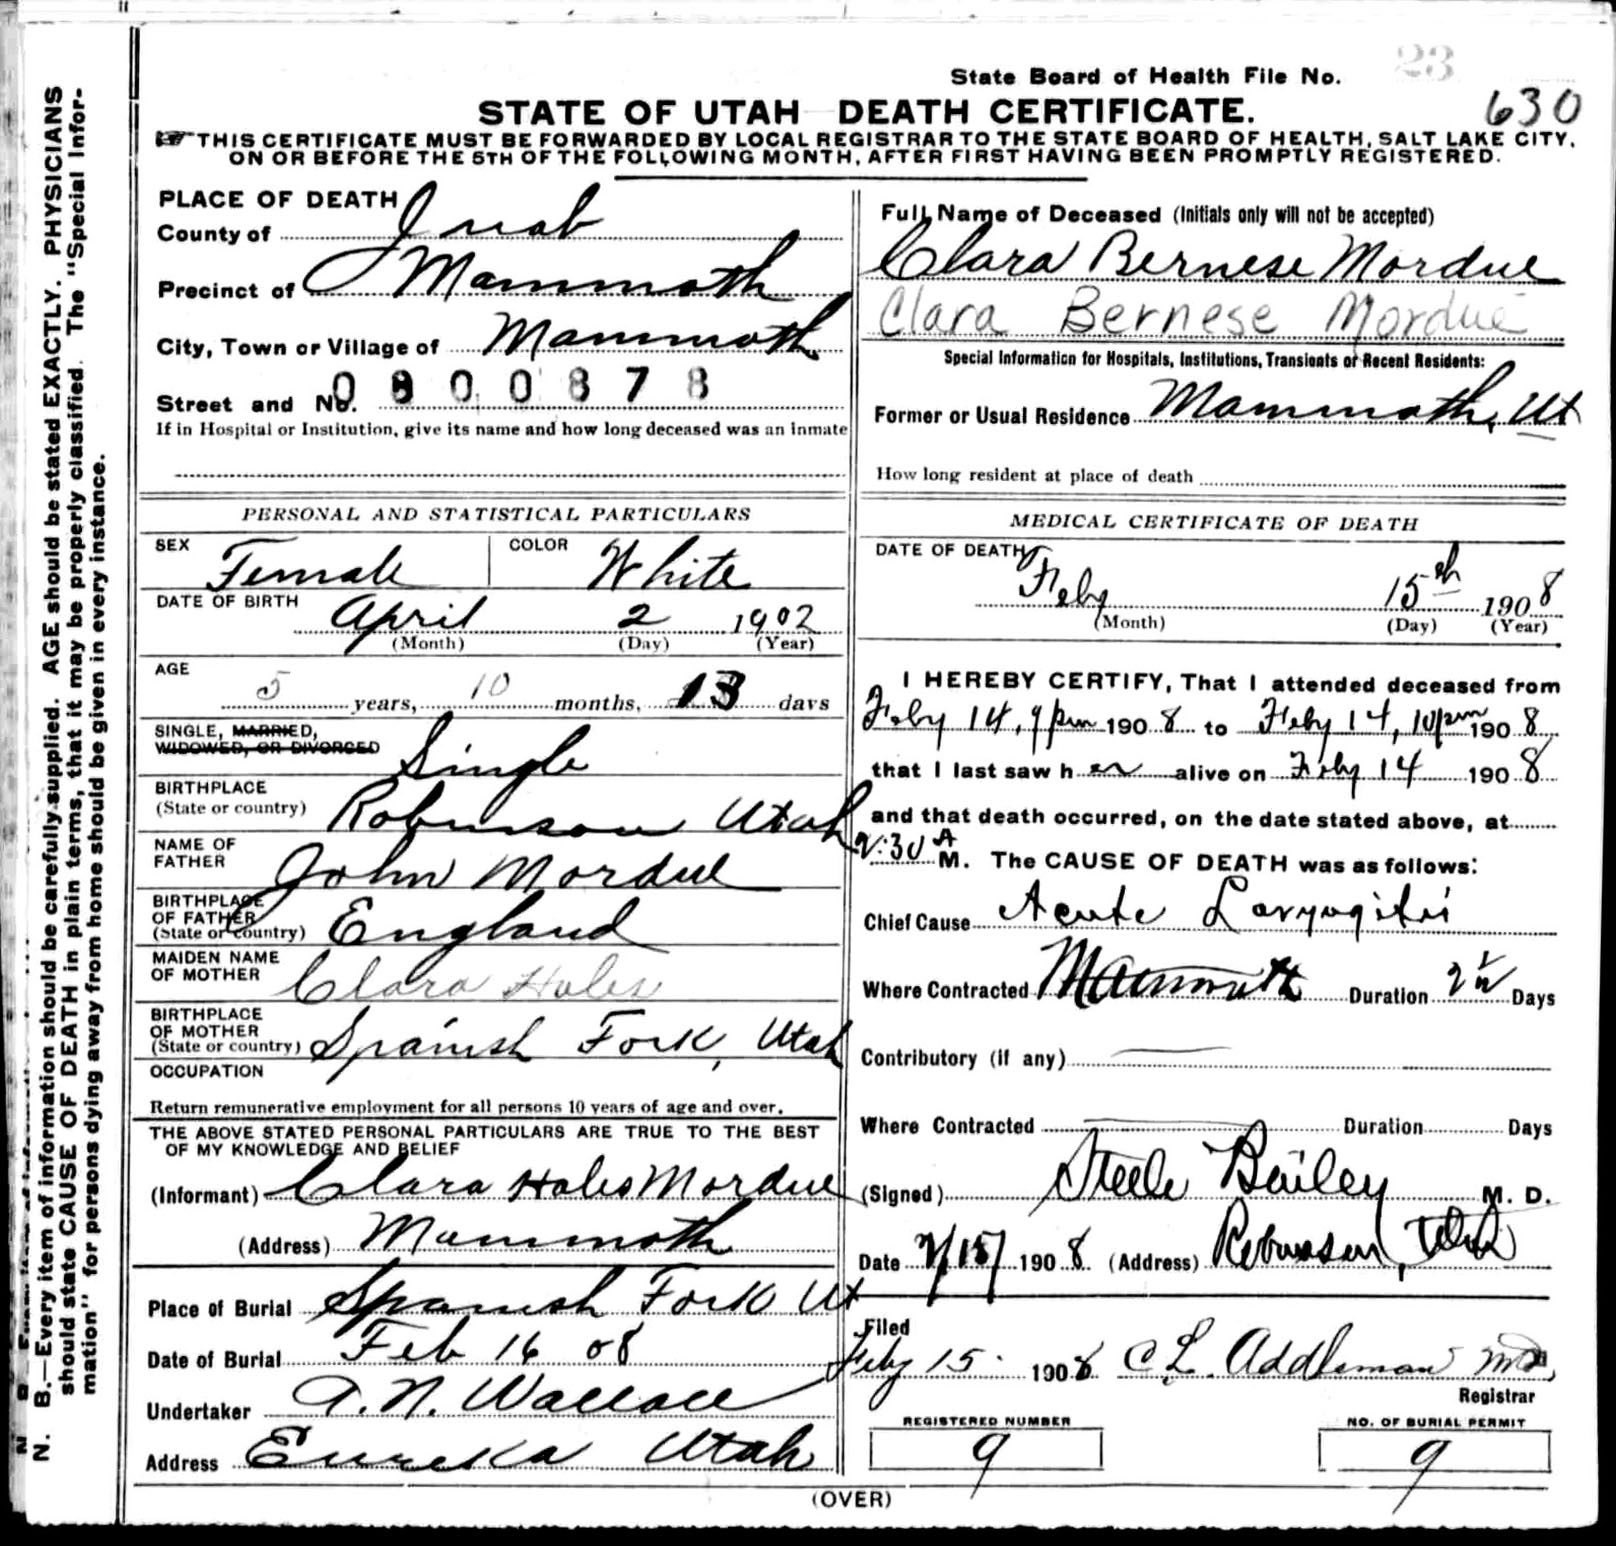 23
State Board of Health File No.
630
STATE OF UTAH DEATH CERTIFICATE.
THIS CERTIFICATE MUST BE FORWARDED BY LOCAL REGISTRAR TO THE STATE BOARD OF HEALTH, SALT LAKE CITY,
ON OR BEFORE THE 5TH OF THE FOLLOWING MONTH, AFTER FIRST HAVING BEEN PROMPTLY REGISTERED.
N. B.—Every item of information should be carefully supplied. AGE should be stated EXACTLY. PHYSICIANS
should state CAUSE OF DEATH in plain terms, that it may be properly classified. The "Special Infor-
mation" for persons dying away from home should be given in every instance.
PLACE OF DEATH
County of Juab
Precinct of Mammoth
City, Town or Village of Mammoth
Street and No. 0800878
If in Hospital or Institution, give its name and how long deceased was an inmate
PERSONAL AND STATISTICAL PARTICULARS
SEX Female COLOR White
DATE OF BIRTH April 2 1902
(Month) (Day) (Year)
AGE
5 years, 10 months, 13 days
SINGLE, MARRIED,
WIDOWED, OR DIVORCED Single
BIRTHPLACE
(State or country) Robinson Utah
NAME OF
FATHER John Mordue
BIRTHPLACE
OF FATHER
(State or country) England
MAIDEN NAME
OF MOTHER Clara Hales
BIRTHPLACE
OF MOTHER
(State or country) Spanish Fork, Utah
OCCUPATION
Return remunerative employment for all persons 10 years of age and over.
THE ABOVE STATED PERSONAL PARTICULARS ARE TRUE TO THE BEST
OF MY KNOWLEDGE AND BELIEF
(Informant) Clara Hales Mordue
(Address) Mammoth
Place of Burial Spanish Fork Ut
Date of Burial Feb 16 08
Undertaker A. N. Wallace
Address Eureka Utah
Full Name of Deceased (Initials only will not be accepted)
Clara Bernese Mordue
Clara Bernese Mordue
Special Information for Hospitals, Institutions, Transients or Recent Residents:
Former or Usual Residence Mammoth, Ut
How long resident at place of death
MEDICAL CERTIFICATE OF DEATH
DATE OF DEATH
Feby 15th 1908
(Month) (Day) (Year)
I HEREBY CERTIFY, That I attended deceased from
Feby 14, 9 pm 1908 to Feby 14, 10 pm 1908
that I last saw her alive on Feby 14 1908
and that death occurred, on the date stated above, at
2:30 A M. The CAUSE OF DEATH was as follows:
Chief Cause Acute Laryngitis
Where Contracted Mammoth Duration 2 1/2 Days
Contributory (if any)
Where Contracted Duration Days
(Signed) Steele Bailey M. D.
Date 2/15/ 1908 (Address) Robinson, Utah
Filed
Feby 15 1908 C L. Addleman MD
Registrar
REGISTERED NUMBER
9
NO. OF BURIAL PERMIT
9
(OVER)